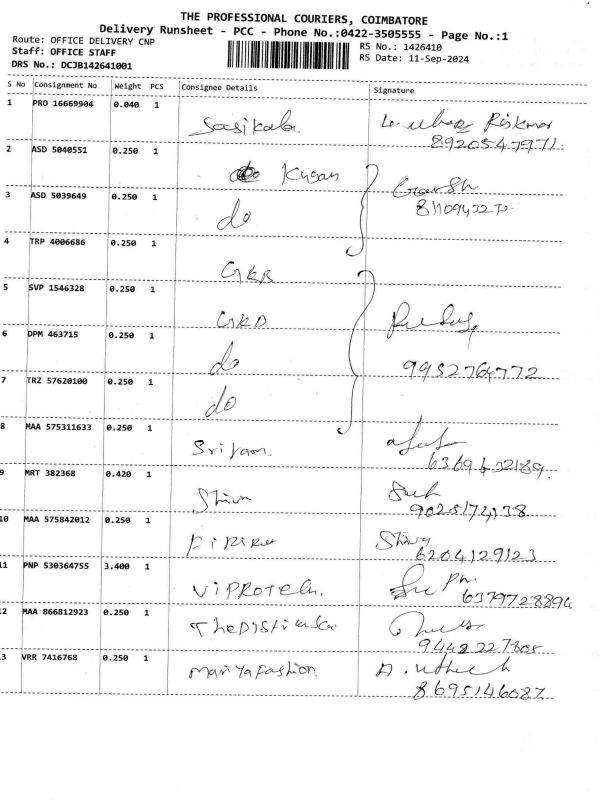 THE PROFESSIONAL COURIERS, COIMBATORE
Delivery Runsheet - PCC - Phone No.:0422-3505555 - Page No.:1
Route: OFFICE DELIVERY CNP
RS No.: 1426410
Staff: OFFICE STAFF
RS Date: 11-Sep-2024
DRS No.: DCJB142641001
S No Consignment No Weight PCS Consignee Details Signature
1 PRO 16669904 0.040 1 Sasikala
8920547971
2 ASD 5040551 0.250 1 Kugan
3 ASD 5039649 0.250 1 do
4 TRP 4006686 0.250 1 GKB
5 SVP 1546328 0.250 1 GKD
6 DPM 463715 0.250 1 do
9952764772
7 TRZ 57620100 0.250 1 do
8 MAA 575311633 0.250 1 Sriram
9 MRT 382368 0.420 1 Shiva
10 MAA 575842012 0.250 1 Shiva
6204129123
11 PNP 530364755 3.400 1 ViPROTeln.
6379728894
12 MAA 866812923 0.250 1
13 VRR 7416768 0.250 1 mariyafashion
8695146087